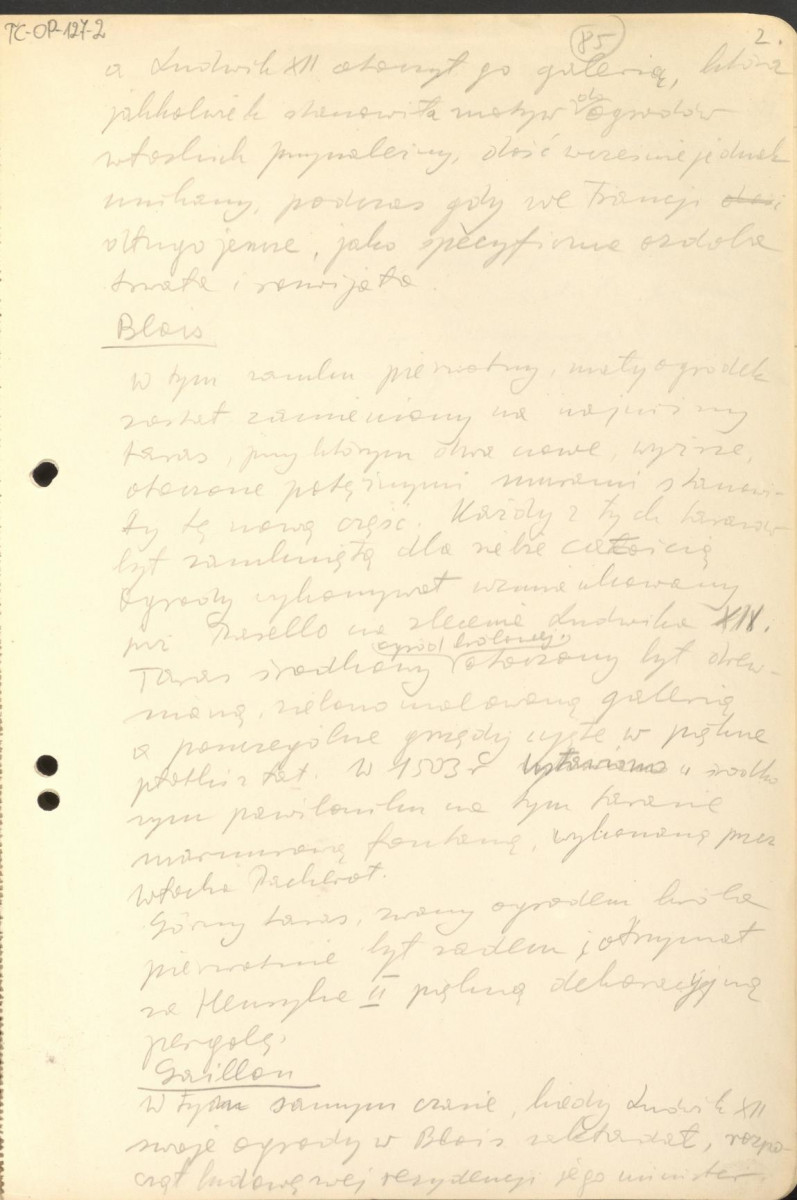 TC-OP-127-2
85
2.
a Ludwik XII otoczył go galerią, która
jakkolwiek stanowiła motyw do ogrodów
włoskich przynależny, dość wcześnie jednak
unikany, podczas gdy we Francji
długo jeszcze, jako specyficzna ozdoba
trwała i rozwijała.
Blois
W tym zamku pierwotny, mały ogródek
został zamieniony na najniższy
taras, przy którym dwa nowe, wyższe,
otoczone potężnymi murami stanowi-
ły tę nową część. Każdy z tych tarasów
był zamkniętą dla siebie całością
Ogrody wykonywał
prz na zlecenie Ludwika XII.
Taras środkowy (ogród królowej) otoczony był drew-
nianą, zielono malowaną galerią
a poszczególne grzędy ujęte w piękne
płotki z łat. W 1503 r. ustawiono w środko
wym pawiloniku na tym tarasie
marmurową fontannę, wykonaną przez
Włocha Pacherot.
Górny taras, zwany ogrodem króla
pierwotnie był sadem i otrzymał
za Henryka II piękną dekoracyjną
pergolę.
Gaillon
W tym samym czasie, kiedy Ludwik XII
swoje ogrody w Blois zakładał, rozpo-
czął budowę swej rezydencji jego minister